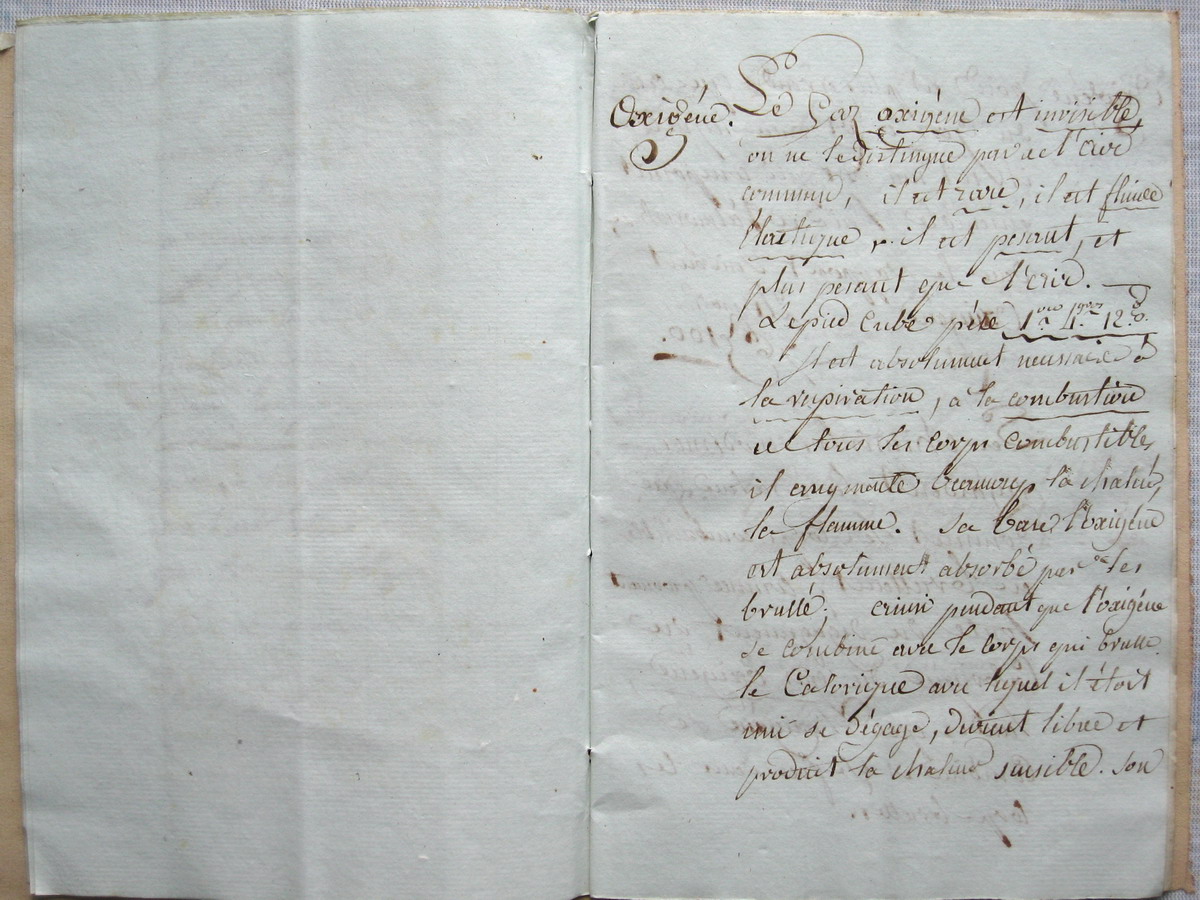 Oxigéne.
Le Gaz oxigéne est invisible,
on ne le distingue pas de l'air
commun, il est rare, il est fluide
élastique, il est pesant, et
plus pesant que l'air.
Le pied cube pése 1 4 12
Il est absolument necessaire à
la respiration, à la combustion
de tous les corps combustibles,
il augmente beaucoup la chaleur,
la flamme. Sa base l'oxigéne
est absolument absorbé par les
brullé; ainsi pendant que l'oxigéne
se combine avec le corps qui brulle
le Calorique avec lequel il étoit
uni se dégage, devient libre et
produit la chaleur sensible. son